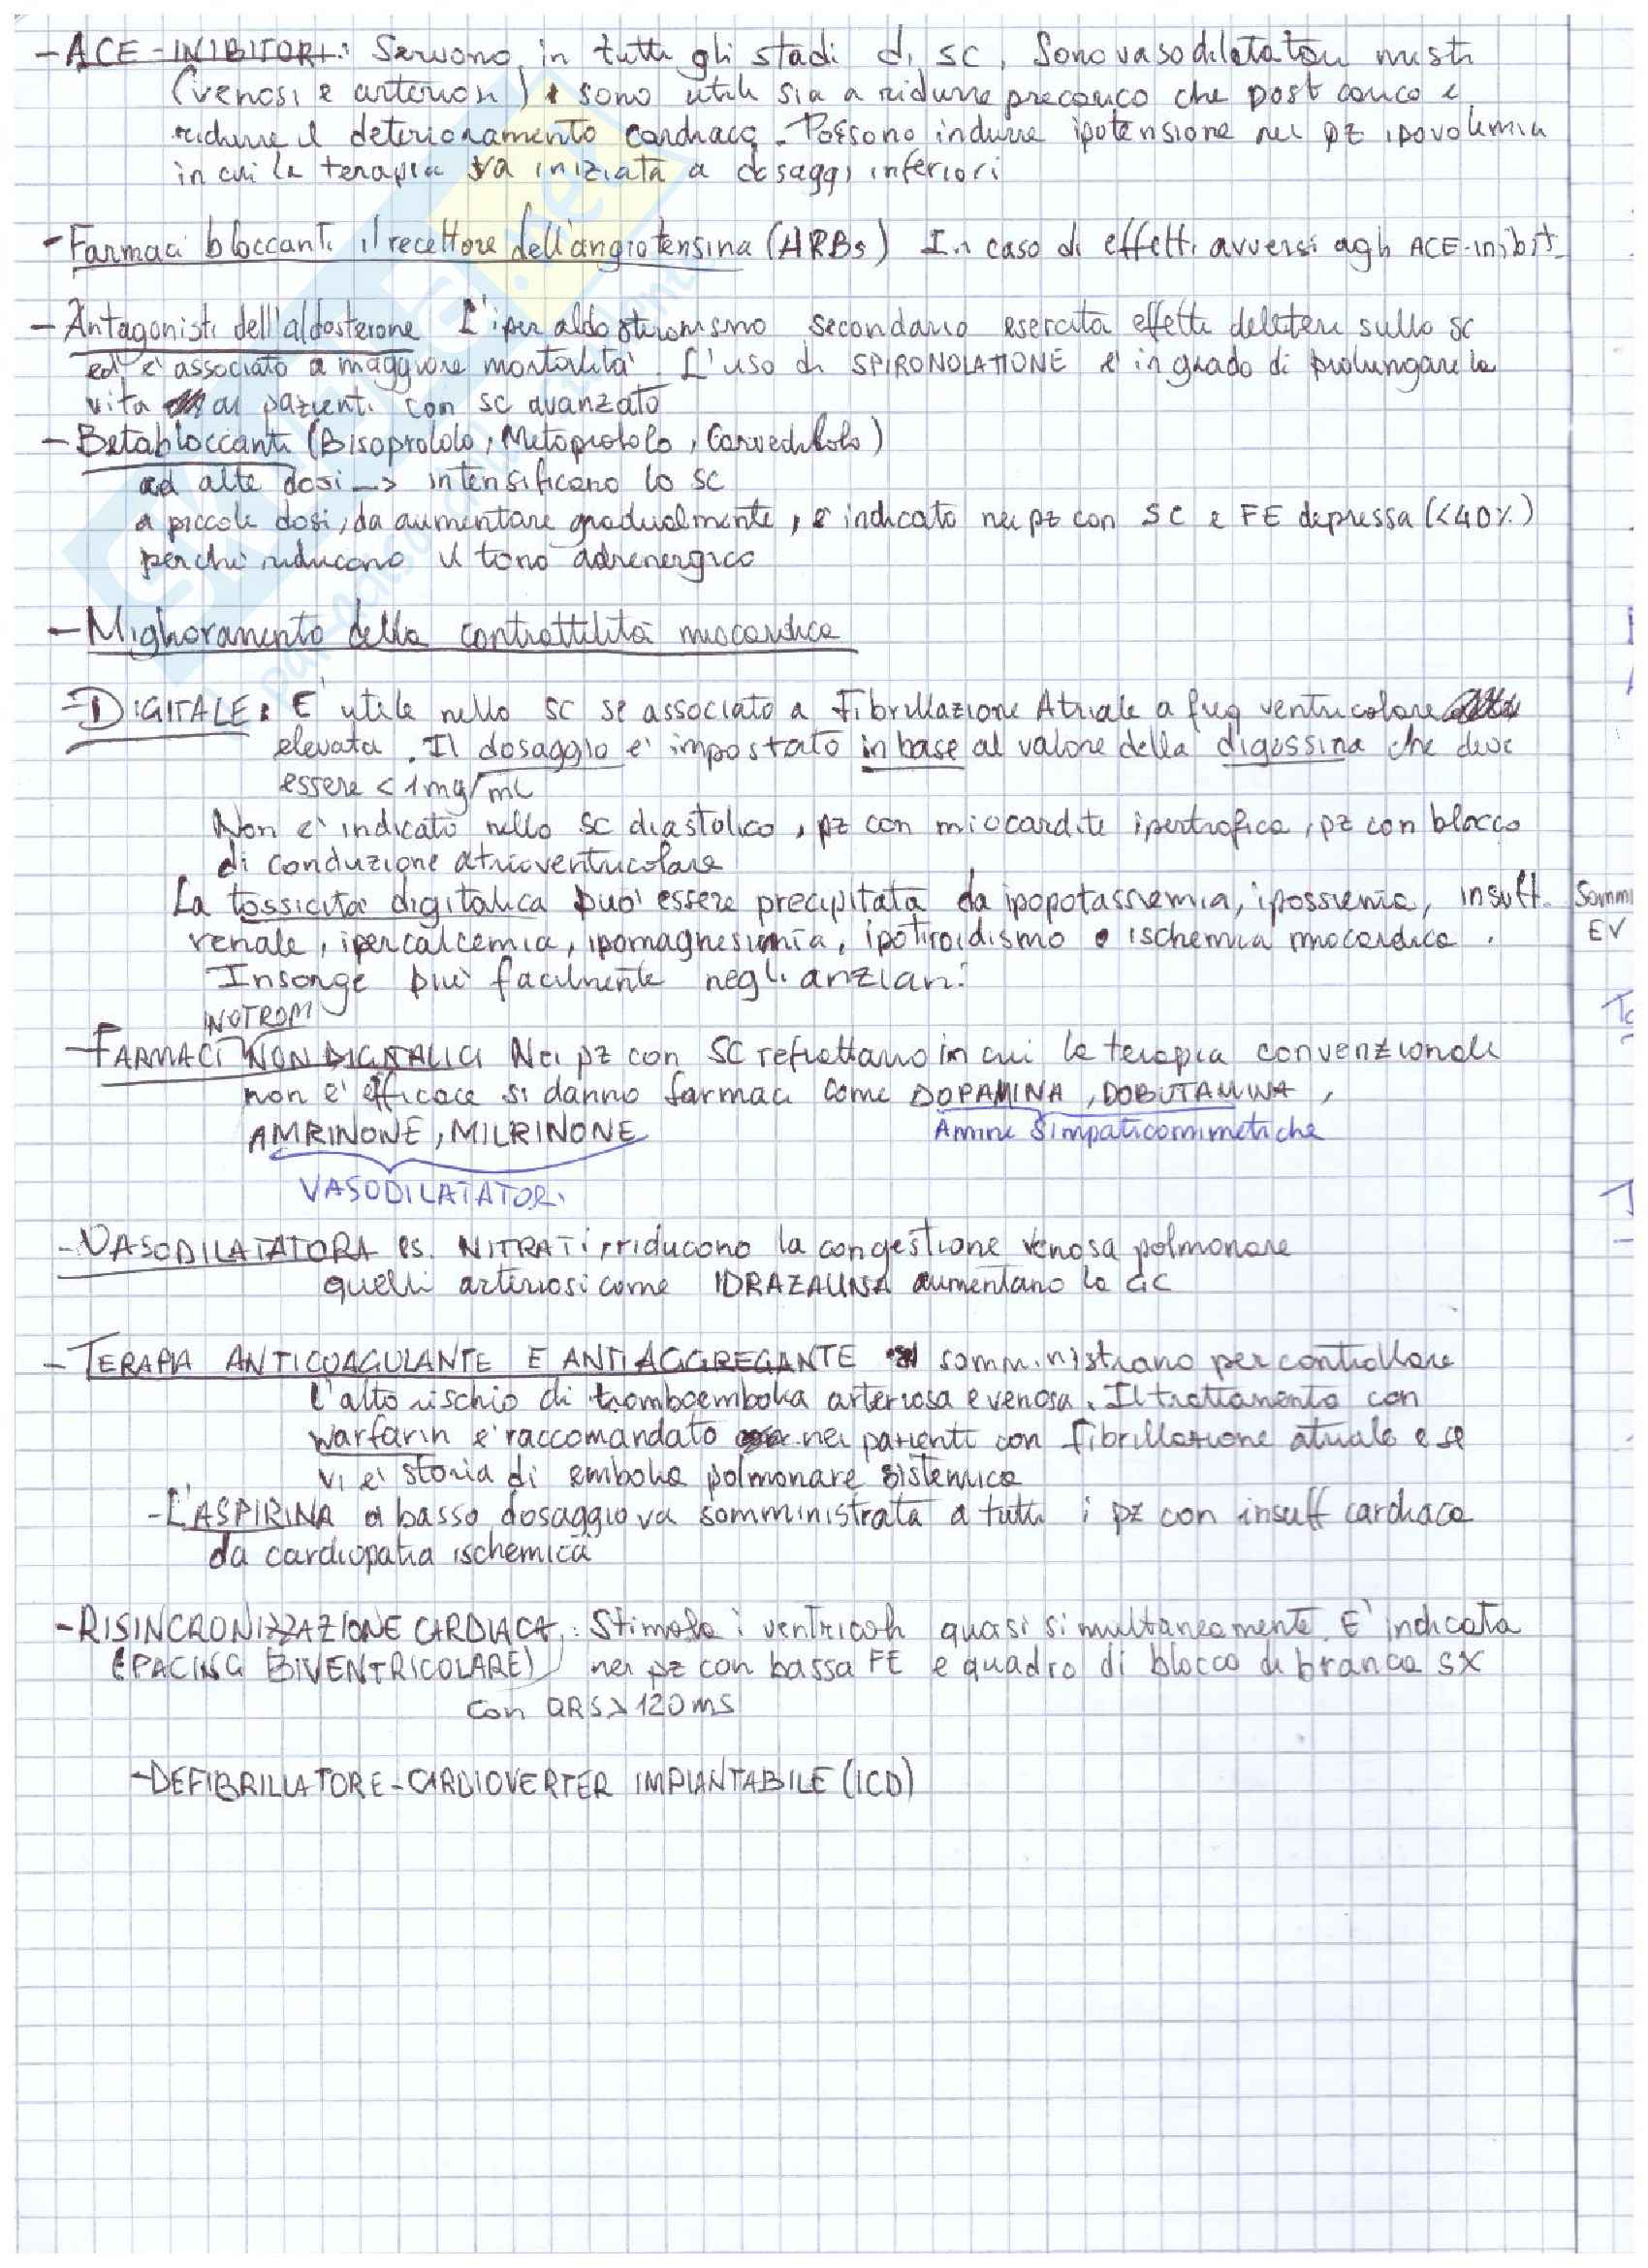 - ACE-INIBITORI: Servono in tutti gli stadi di SC. Sono vasodilatatori misti
(venosi e arteriosi) e sono utili sia a ridurre precarico che post carico e
ridurre il deterioramento cardiaco. Possono indurre ipotensione nei pz ipovolemia
in cui la terapia va iniziata a dosaggi inferiori
- Farmaci bloccanti il recettore dell'angiotensina (ARBs) In caso di effetti avversi agli ACE-inibit.
- Antagonisti dell'aldosterone L'iperaldosteronismo secondario esercita effetti deleteri sullo SC
ed è associato a maggiore mortalità. L'uso di SPIRONOLATTONE è in grado di prolungare la
vita ai pazienti con SC avanzato
- Betabloccanti (Bisoprololo, Metoprololo, Carvedilolo)
ad alte dosi --> intensificano lo SC
a piccole dosi, da aumentare gradualmente, è indicato nei pz con SC e FE depressa (<40%)
perché riducono il tono adrenergico
- Miglioramento della contrattilità miocardica
- DIGITALE: E' utile nello SC se associato a Fibrillazione Atriale a freq ventricolare
elevata. Il dosaggio è impostato in base al valore della digossina che deve
essere < 1mg/mL
Non è indicato nello SC diastolico, pz con miocardite ipertrofica, pz con blocco
di conduzione atrioventricolare
La tossicità digitalica può essere precipitata da ipopotassiemia, ipossiemia, insuff.
renale, ipercalcemia, ipomagnesiemia, ipotiroidismo o ischemia miocardica.
Insorge più facilmente negli anziani
INOTROPI
- FARMACI NON DIGITALICI Nei pz con SC refrattario in cui la terapia convenzionale
non è efficace si danno farmaci come DOPAMINA, DOBUTAMINA,
AMRINONE, MILRINONE Amine Simpaticomimetiche
VASODILATATORI
- VASODILATATORI es. NITRATI, riducono la congestione venosa polmonare
quelli arteriosi come IDRAZALINA aumentano la GC
- TERAPIA ANTICOAGULANTE E ANTIAGGREGANTE si somministrano per controllare
l'alto rischio di tromboembolia arteriosa e venosa. Il trattamento con
warfarin è raccomandato nei pazienti con fibrillazione atriale e se
vi è storia di embolia polmonare sistemica
- L'ASPIRINA a basso dosaggio va somministrata a tutti i pz con insuff cardiaca
da cardiopatia ischemica
- RISINCRONIZZAZIONE CARDIACA: Stimola i ventricoli quasi simultaneamente. E' indicata
(PACING BIVENTRICOLARE) nei pz con bassa FE e quadro di blocco di branca SX
con QRS > 120 ms
- DEFIBRILLATORE-CARDIOVERTER IMPIANTABILE (ICD)
Somm
EV